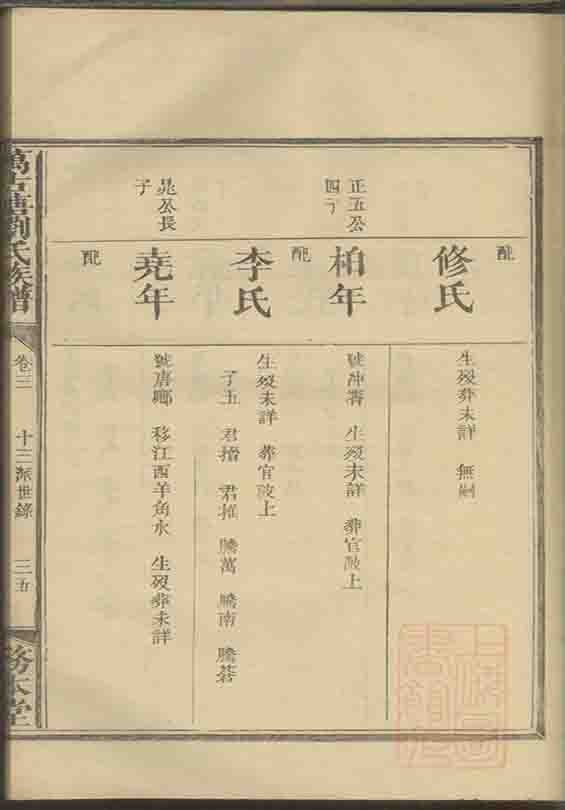 配
修氏
生歿葬未詳 無嗣
正五公
四子
柏年
號冲霄 生歿未詳 葬官陂上
配
李氏
生歿未詳 葬官陂上
子五 君搢 君推 騰萬 騰南 騰蛟
晁公長
子
堯年
號唐卿 移江西羊角水 生歿葬未詳
配
萬古塘劉氏族譜
卷三
十三派世錄
三五
務本堂